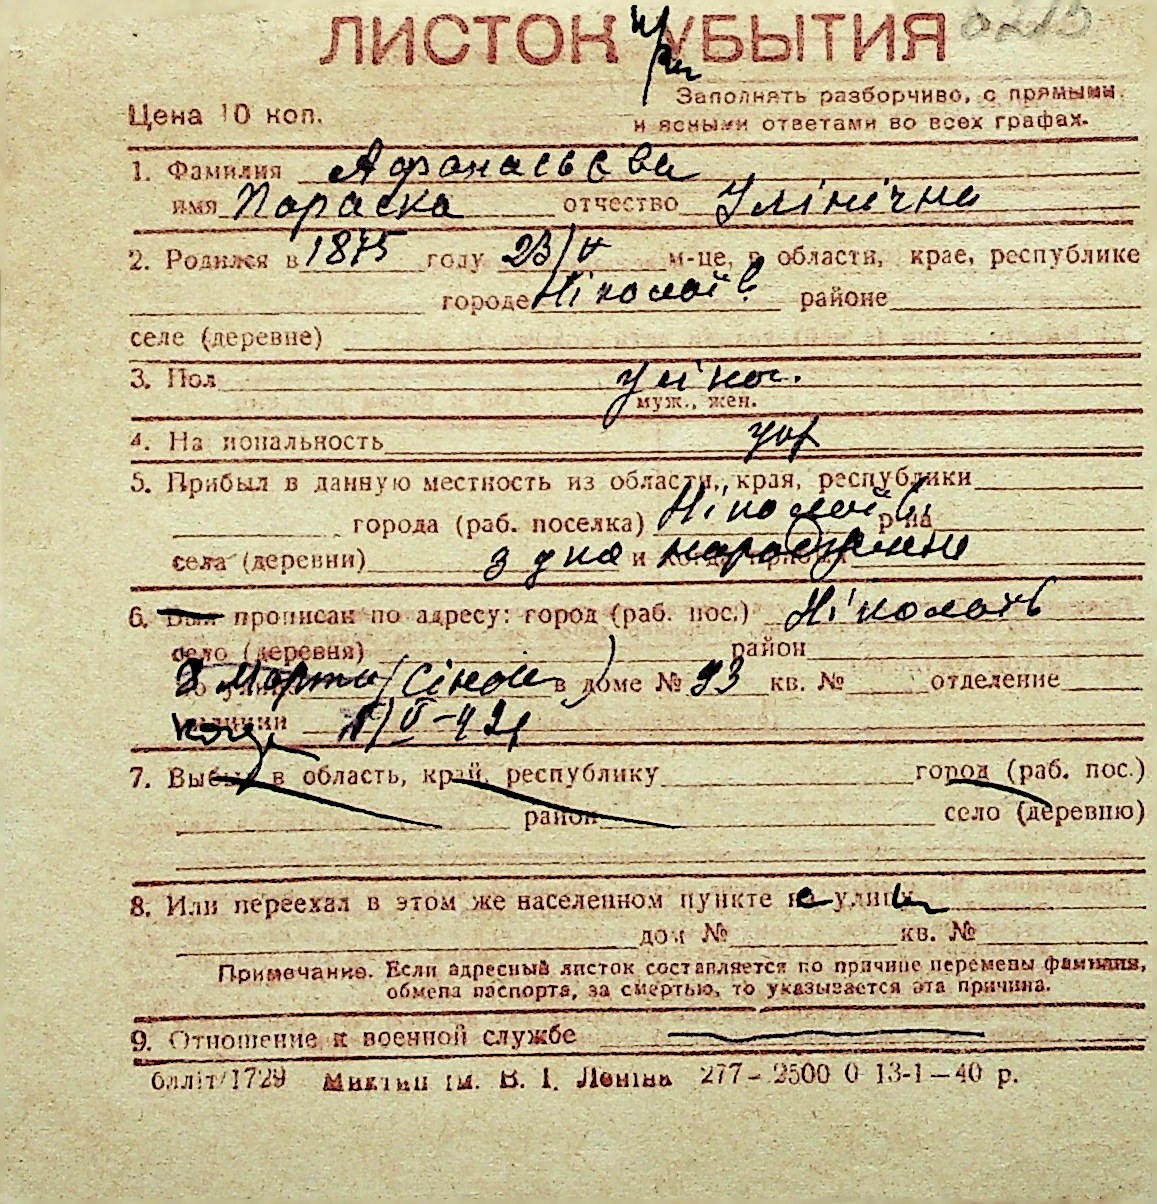 ЛИСТОК УБЫТИЯ
Цена 10 коп.
Заполнять разборчиво, с прямыми
и ясными ответами во всех графах.
1. Фамилия Афанасьєва
имя Параска отчество
2. Родился в 1875 году 23/V м-це, в области, крае, республике
городе Ніколаїв районе
селе (деревне)
3. Пол жіноч.
муж., жен.
4. На иональность укр
5. Прибыл в данную местность из области, края, республики
города (раб. поселка) Ніколаїв р-на
села (деревни) з дня народження
6. Был прописан по адресу: город (раб. пос.) Ніколаїв
село (деревня) район
8 Марта (Сінна) в доме № 93 кв. № отделение
милиции /V-42
7. Выбыл в область, край, республику город (раб. пос.)
район село (деревню)
8. Или переехал в этом же населенном пункте на улицу
дом № кв. №
Примечание. Если адресный листок составляется по причине перемены фамилия,
обмена паспорта, за смертью, то указывается эта причина.
9. Отношение к военной службе
білліт/1729 Миктип ім. В. І. Леніна 277-2500 0 13-1-40 р.